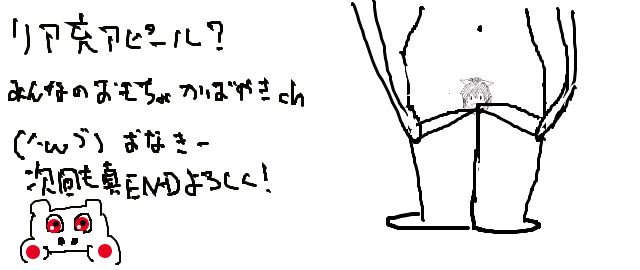 リア充アピール?
みんなのおもちゃ かいばやきch
(^ω^) おなきー
次回も真ENDよろしく!